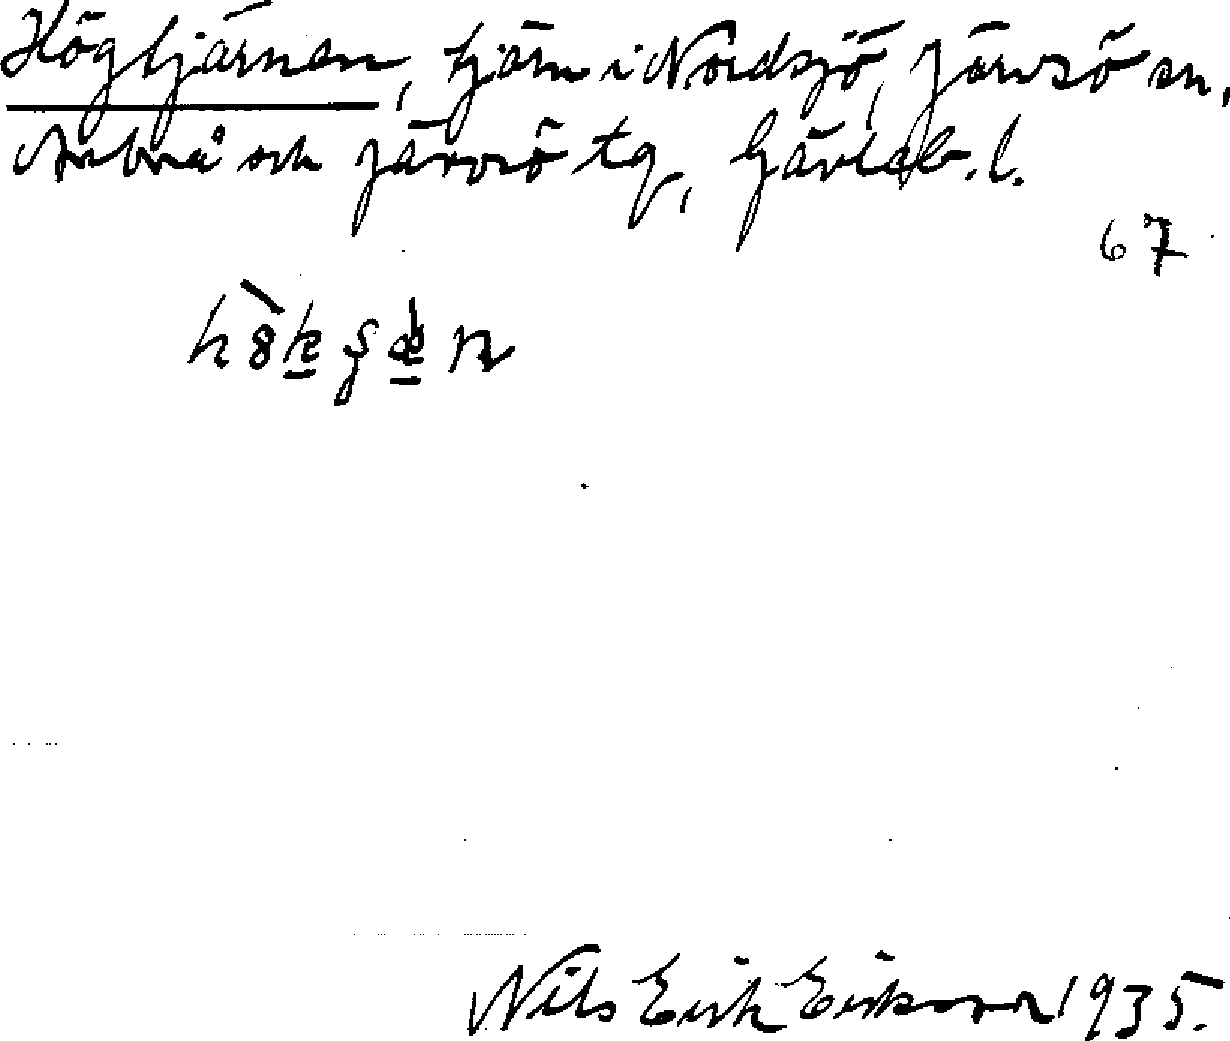 Högtjärnen, tjärn i Nordsjö, Järvsö sn,
Arbrå och Järvsö tg, Gävleb. l.
67
Nils Erik Eriksson 1935.